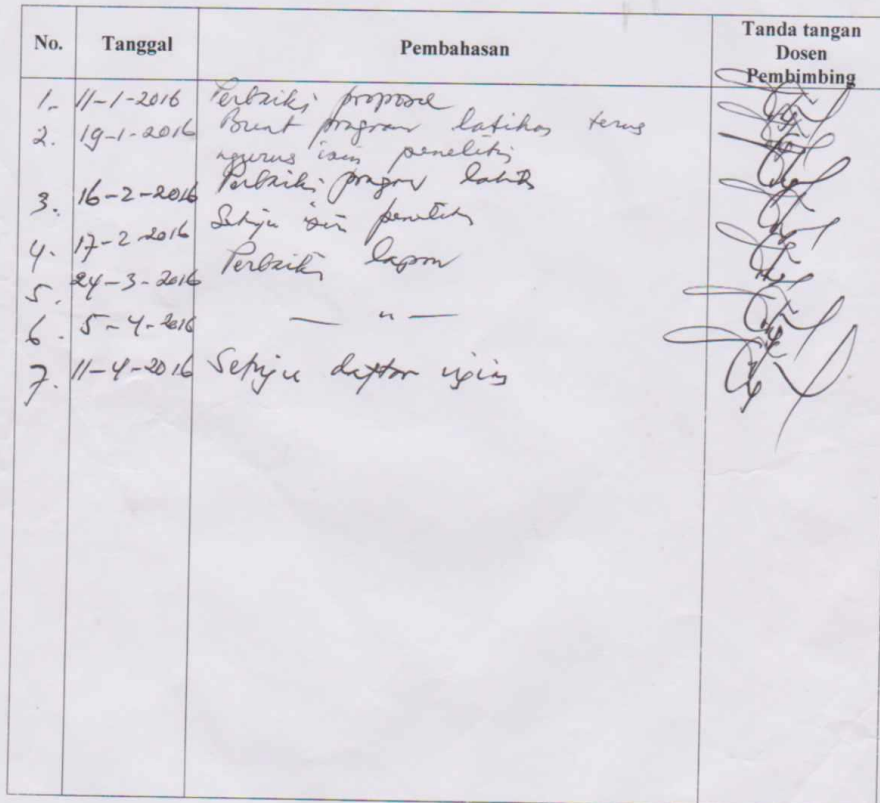 No. Tanggal Pembahasan Tanda tangan
Dosen
Pembimbing
1. 11-1-2016 Perbaiki proposal
2. 19-1-2016 Buat program latihan terus
ngurus izin penelitian
3. 16-2-2016 Perbaiki program latihan
4. 17-2-2016 Setuju izin penelitian
5. 24-3-2016 Perbaiki laporan
6. 5-4-2016 — " —
7. 11-4-2016 Setuju daftar ujian